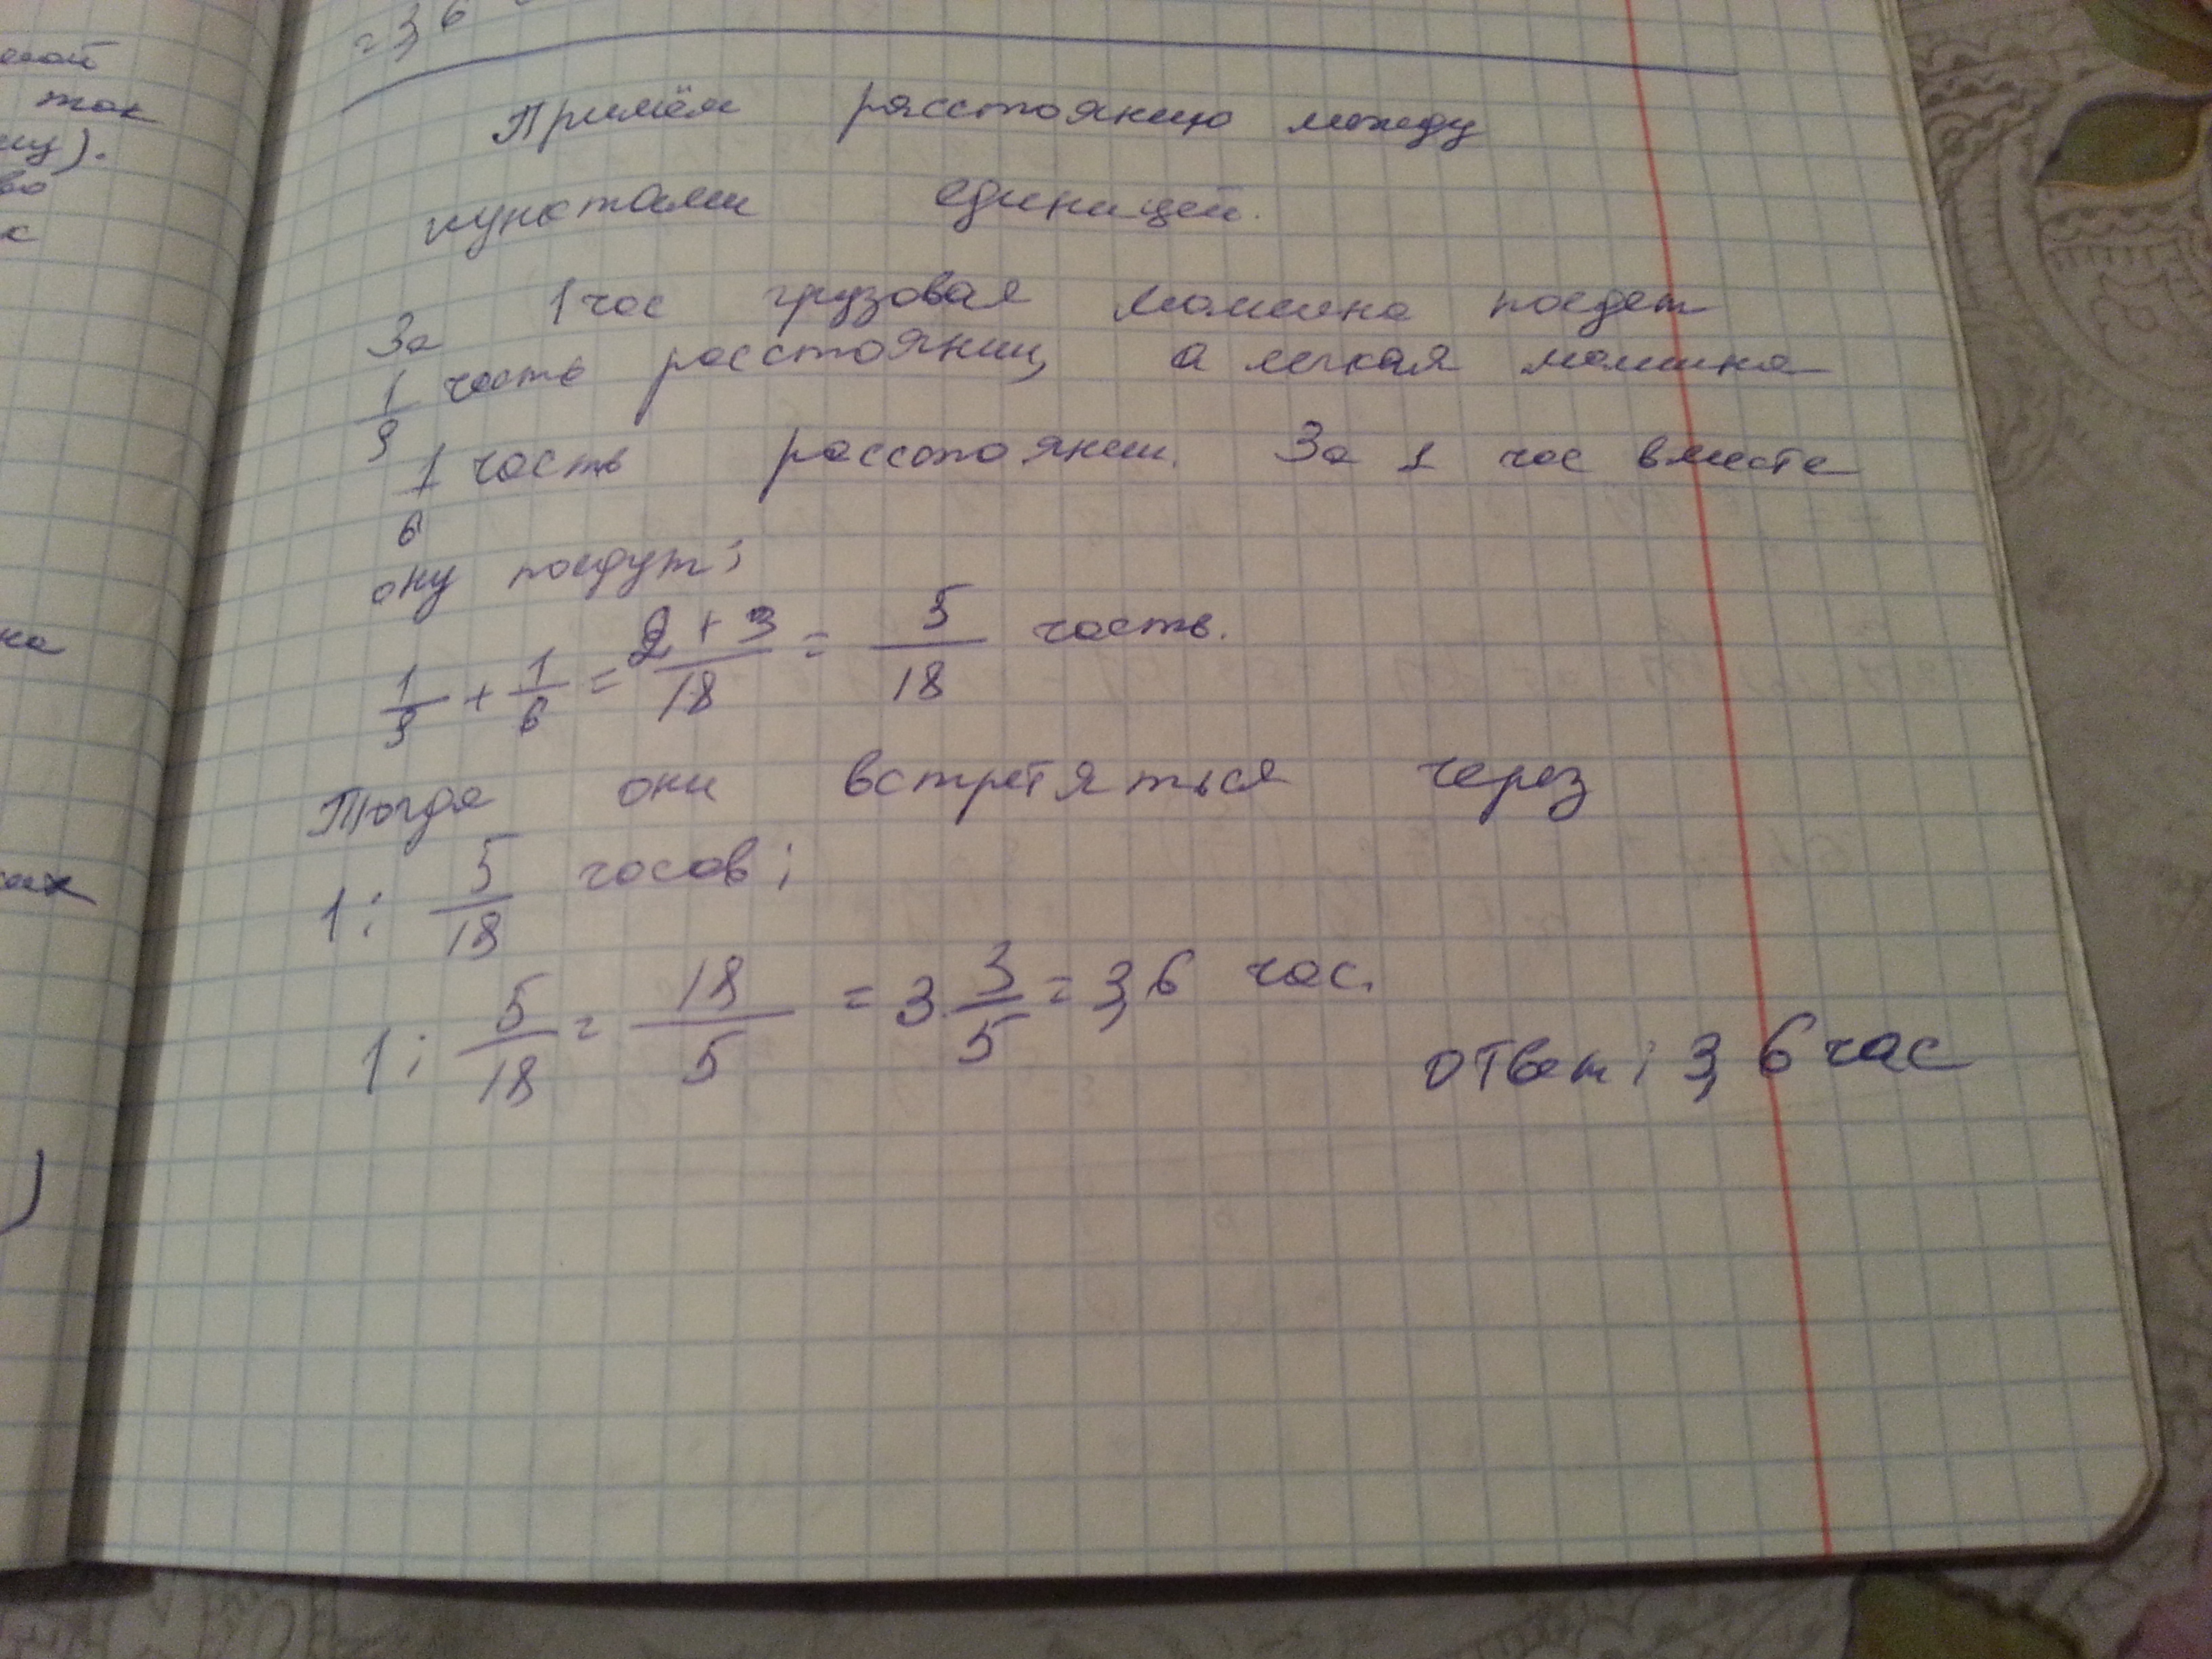 = 3,6
Примём расстоянию между
пунктами единицей.
За 1 час грузовая машина поедет
1/9 часть расстоянии, а легкая машина
1/6 часть расстоянии. За 1 час вместе
ону поедут:
1/9 + 1/6 = 2+3/18 = 5/18 часть.
Тогда они встретяться через
1 : 5/18 часов;
1 : 5/18 = 18/5 = 3 3/5 = 3,6 час.
ответ: 3,6 час
так
на